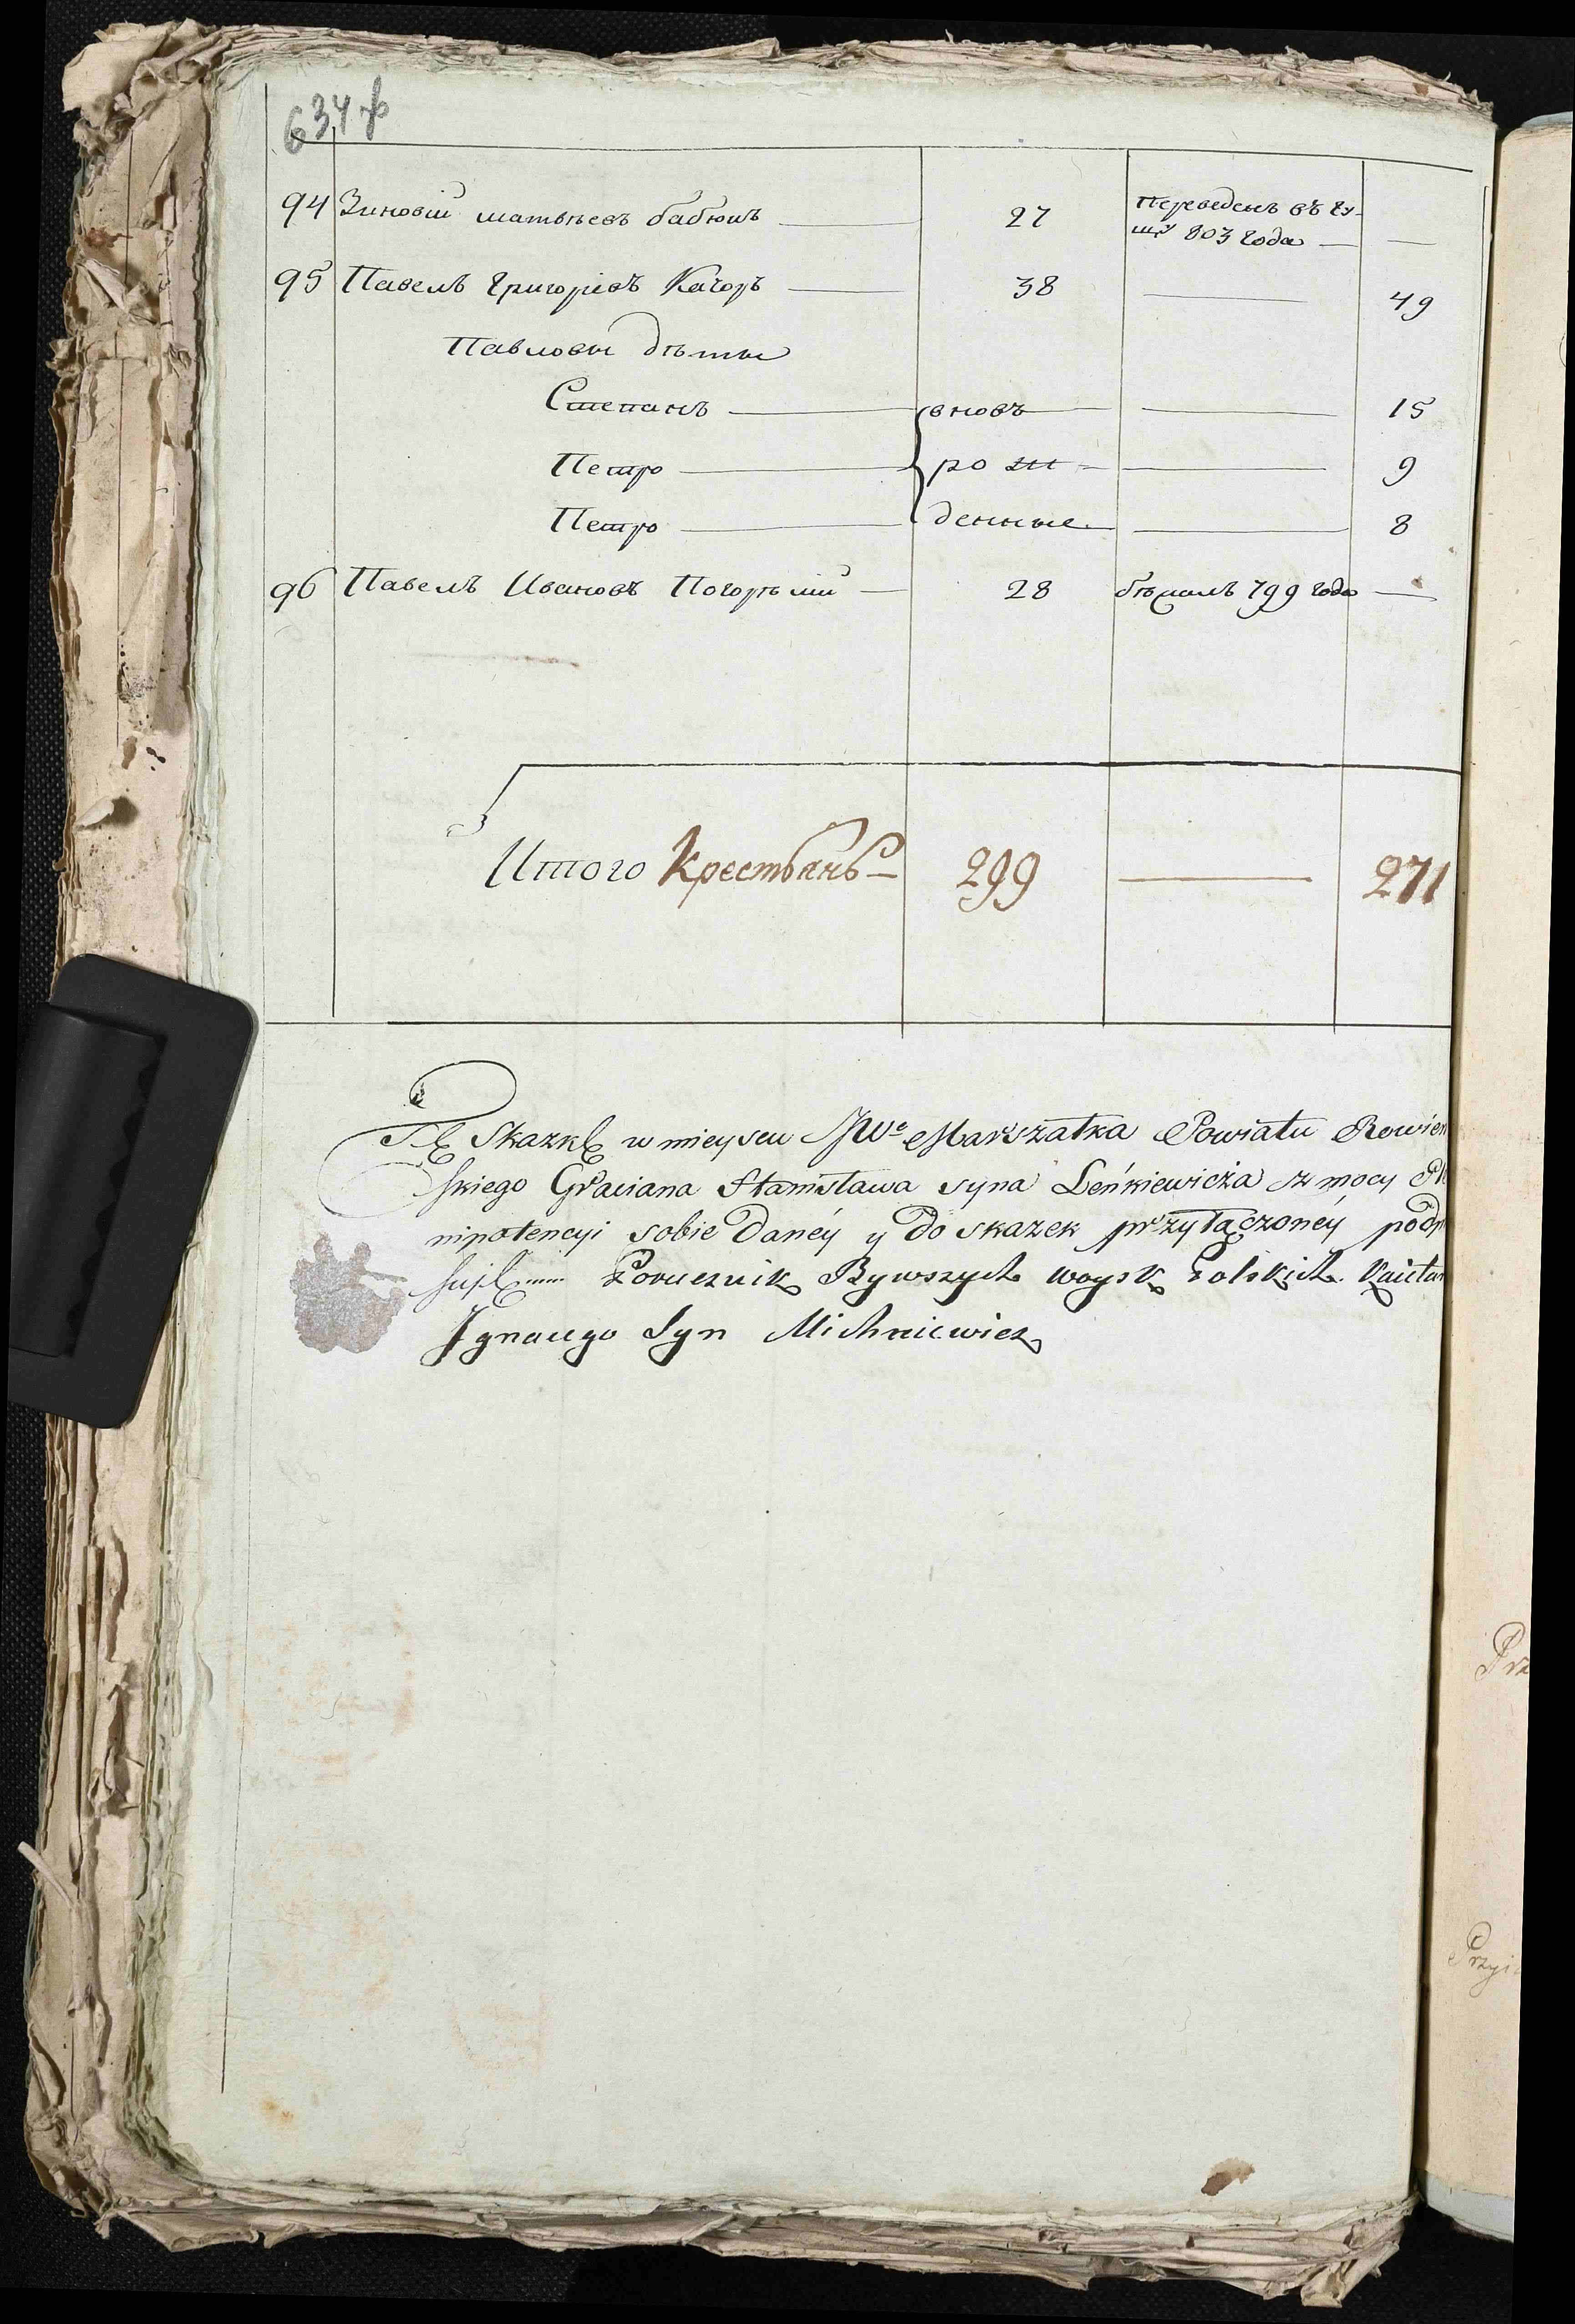 634 об
94 Зиновій матвѣевъ бабюкъ 27 Переведенъ въ гу-
щу 803 года —
95 Павелъ Григоріевъ Качоръ 38 — 49
Павловы дѣты
Степанъ вновь — 15
Петро рож= — 9
Петро денные — 8
96 Павелъ Ивановъ Погорѣлій 28 бѣжалъ 799 года —
Итого Крестьянъ 299 — 271
Tę Skazkę w mieyscu JWe Marszałka Powiatu Rowień
skiego Graciana Stanisława syna Leńkiewicza z mocy Ple
nipotencyi sobie Daney y Do skazek przyłączoney podpi
suję...... Porucznik Bywszych woysk Polskich Kaietan
Ignacego Syn Michniewicz
Prz
Przyi